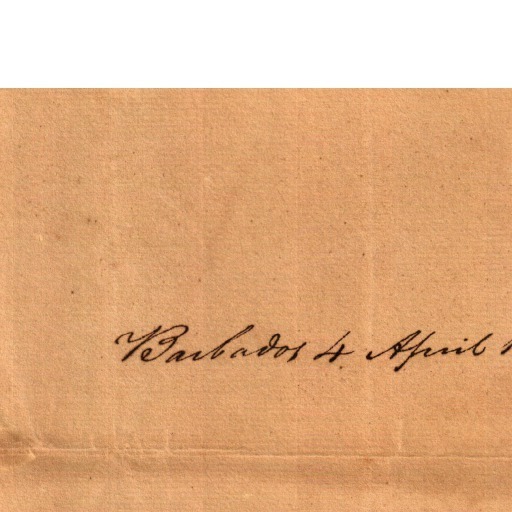 Barbados 4 April